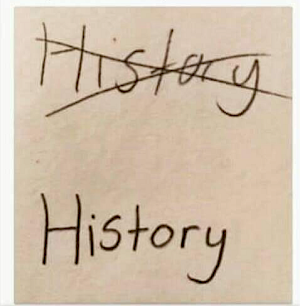 History
History